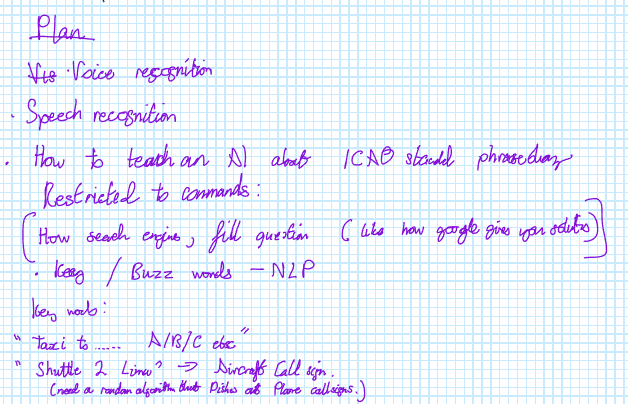 Plan
Vis · Voice recognition
· Speech recognition
· How to teach an AI about ICAO standard phraseology
Restricted to commands:
[How search engines, fill question (like how google gives you solutions)]
· Key / Buzz words - NLP
Key words:
"Taxi to ...... A/B/C etc"
"Shuttle 2 Lima" → Aircraft Call sign.
(need a random algorithm that Dishes out Plane callsigns.)